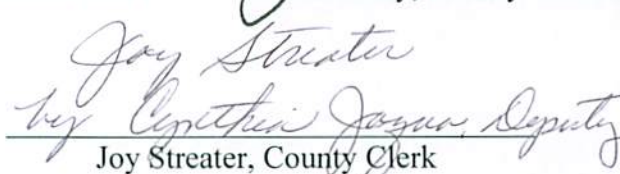 Joy Streater
by Cynthia Deputy
Joy Streater, County Clerk